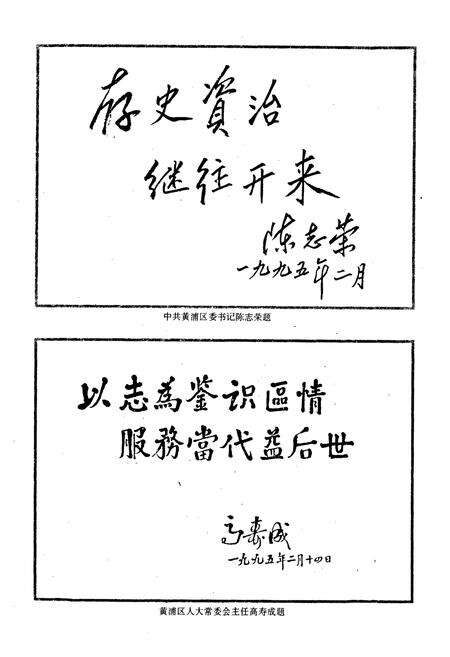 存史資治
继往开来
陈志荣
一九九五年二月
中共黄浦区委书记陈志荣题
以志為鉴识區情
服務當代益后世
高寿成
一九九五年二月十四日
黄浦区人大常委会主任高寿成题